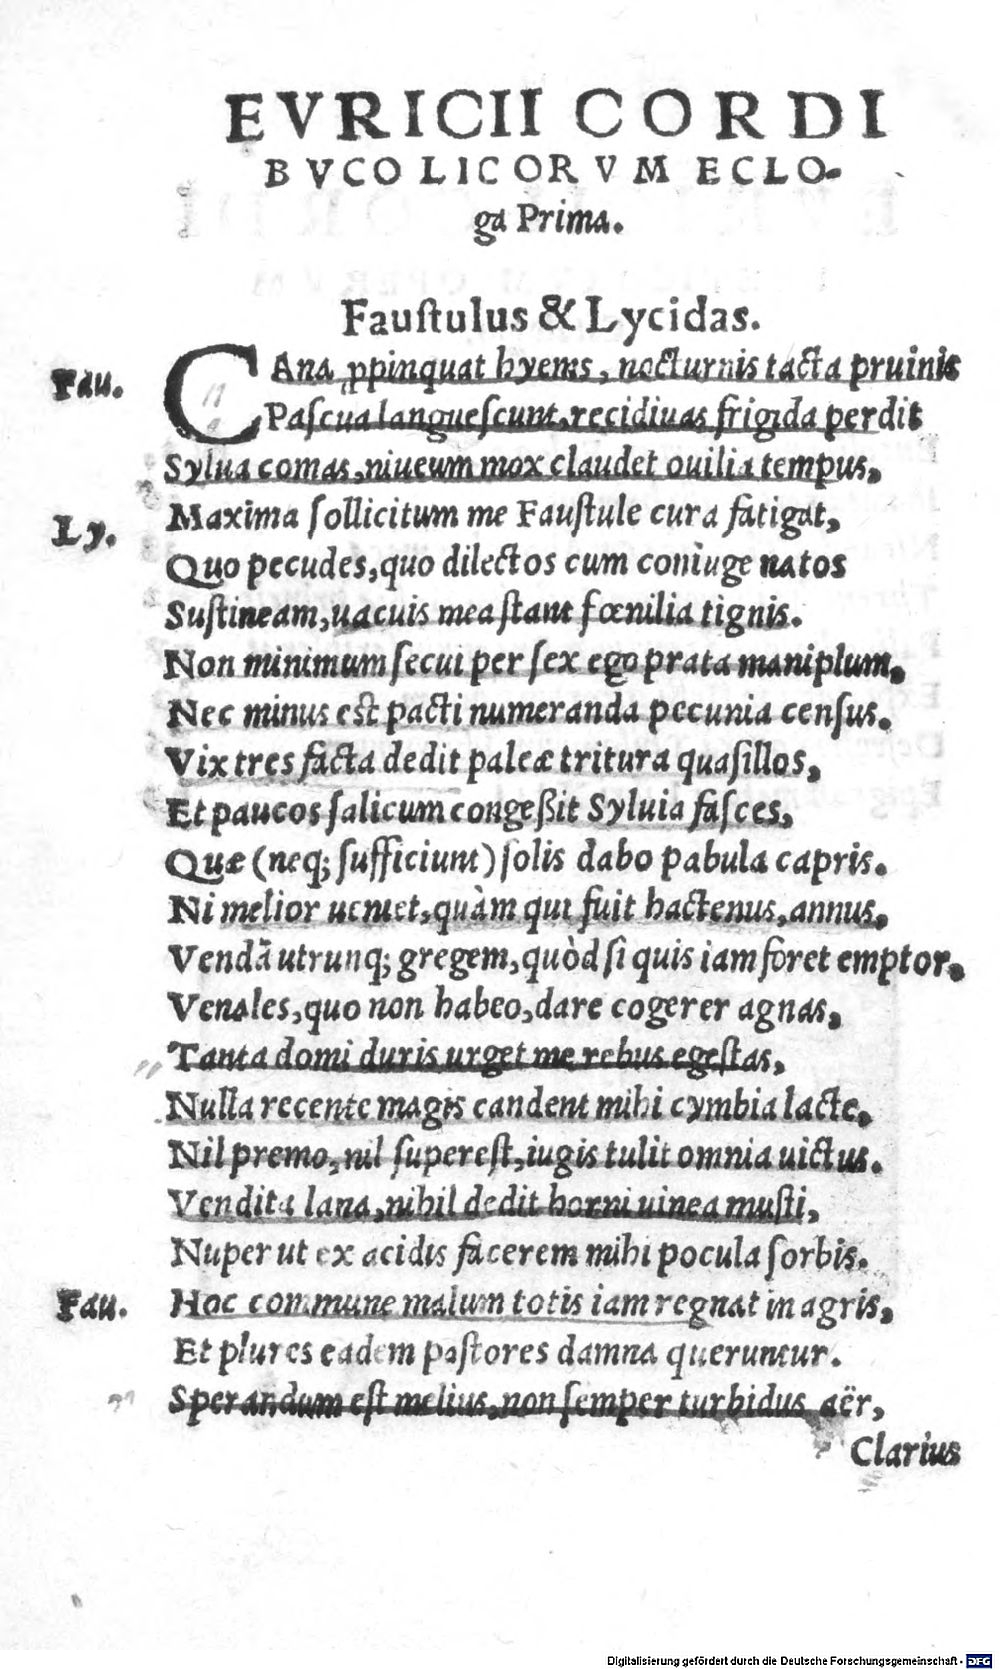 EVRICII CORDI
BVCOLICORVM ECLO-
ga Prima.
Fauſtulus & Lycidas.
Fau. CAna ꝓpinquat hyems, nocturnis tacta pruinis
Paſcua langueſcunt, recidiuas frigida perdit
Sylua comas, niueum mox claudet ouilia tempus,
Ly. Maxima ſollicitum me Fauſtule cura fatigat,
Quo pecudes, quo dilectos cum coniuge natos
Suſtineam, uacuis mea ſtant fœnilia tignis.
Non minimum ſecui per ſex ego prata maniplum,
Nec minus eſt pacti numeranda pecunia cenſus.
Vix tres facta dedit paleæ tritura quaſillos,
Et paucos ſalicum congeßit Syluia faſces,
Quæ (neq; ſufficiunt) ſolis dabo pabula capris.
Ni melior ueniet, quàm qui fuit hactenus, annus,
Vendā utrunq; gregem, quòd ſi quis iam foret emptor.
Venales, quo non habeo, dare cogerer agnas,
Tanta domi duris urget me rebus egeſtas,
Nulla recente magis candent mihi cymbia lacte,
Nil premo, nil ſupereſt, iugis tulit omnia uictus.
Vendita lana, nihil dedit horni uinea muſti,
Nuper ut ex acidis facerem mihi pocula ſorbis.
Fau. Hoc commune malum totis iam regnat in agris,
Et plures eadem paſtores damna queruntur.
Sperandum eſt melius, non ſemper turbidus aër,
Clarius
Digitalisierung gefördert durch die Deutsche Forschungsgemeinschaft - DFG